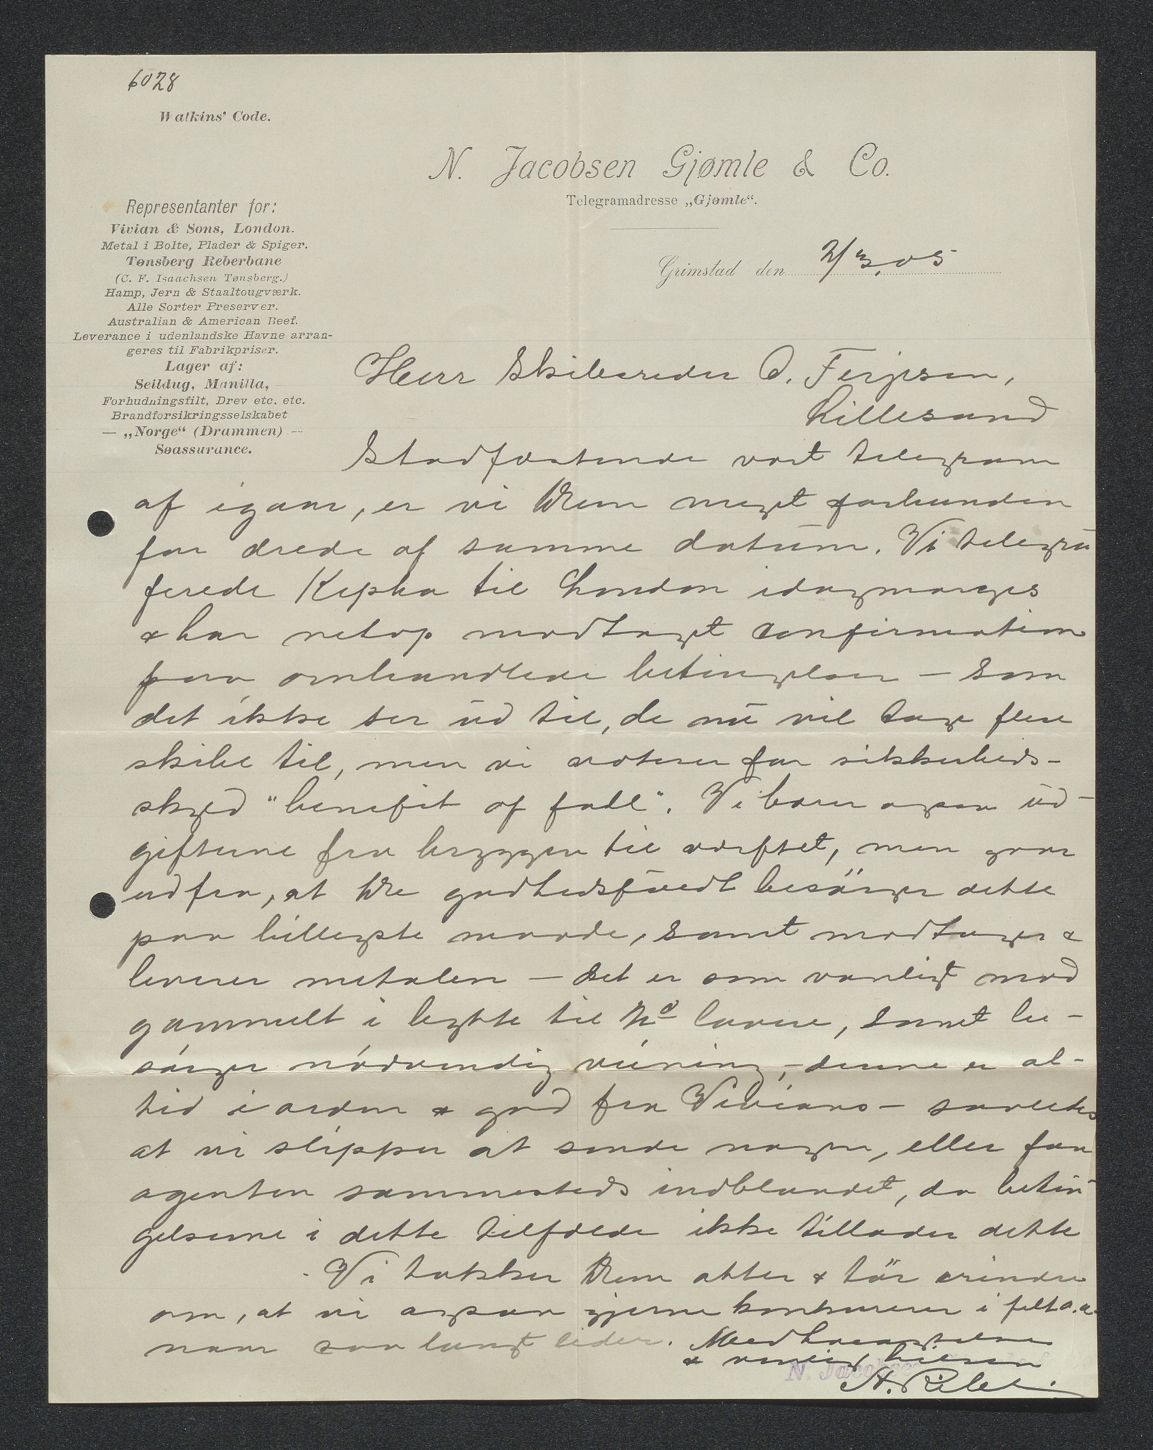 6028
Watkins' Code.
N. Jacobsen Gjømle & Co.
Telegramadresse „Gjømle“.
Representanter for:
Vivian & Sons, London.
Metal i Bolte, Plader & Spiger.
Tønsberg Reberbane
(C. F. Isaachsen Tønsberg.)
Hamp, Jern & Staaltougværk.
Alle Sorter Preserver.
Australian & American Beef.
Leverance i udenlandske Havne arran-
geres til Fabrikpriser.
Lager af:
Seildug, Manilla,
Forhudningsfilt, Drev etc. etc.
Brandforsikringsselskabet
— „Norge“ (Drammen) —
Søassurance.
Grimstad den 2/3.05
Herr Skibsreder O. Terjesen,
Lillesand
Stadfæstende vort telegram
af igaar, er vi Dem meget forbunden
for ærede af samme datum. Vi telegra
ferede Kepha til London idagmorges
& har netop modtaget confirmation
paa omhandlede betingelser – Som
det ikke ser ud til, de nu vil tage flere
skibe til, men vi noterer for sikkerheds-
skyld "benefit of fall". Vi bærer ogsaa ud-
gifterne fra bryggen til værftet, men gaar
ud fra, at De godhedsfuldt besörger dette
paa billigste maade, samt modtager &
leverer metalen – det er som vanligt med
gammelt i bytte til No lavere, samt be-
sörger nödvendig veining, – denne er al-
tid i orden & god fra Vivians – saaledes
at vi slipper at sende nogen, eller faa
agenten sammesteds indblandet, da betin
gelserne i dette tilfælde ikke tillader dette
Vi takker Dem atter & tör erindre
om, at vi ogsaa gjerne konkurerer i filt o.a.
naar saa langt lider. Med höiagtelse
& venlig hilsen
N. Jacobsen